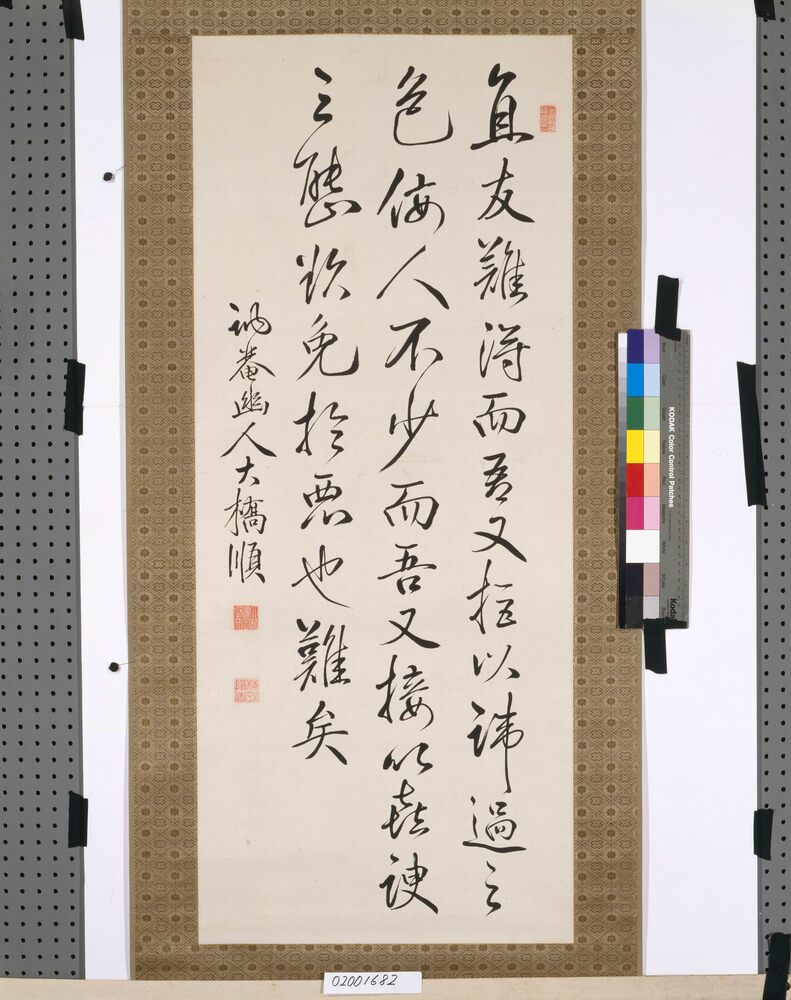 直友難得而吾又拒以諱過之
色佞人不少而吾又接以喜諛
之態欲免於悪也難矣
訥菴幽人大橋順
KODAK Color Control Patches
Kodak
02001682